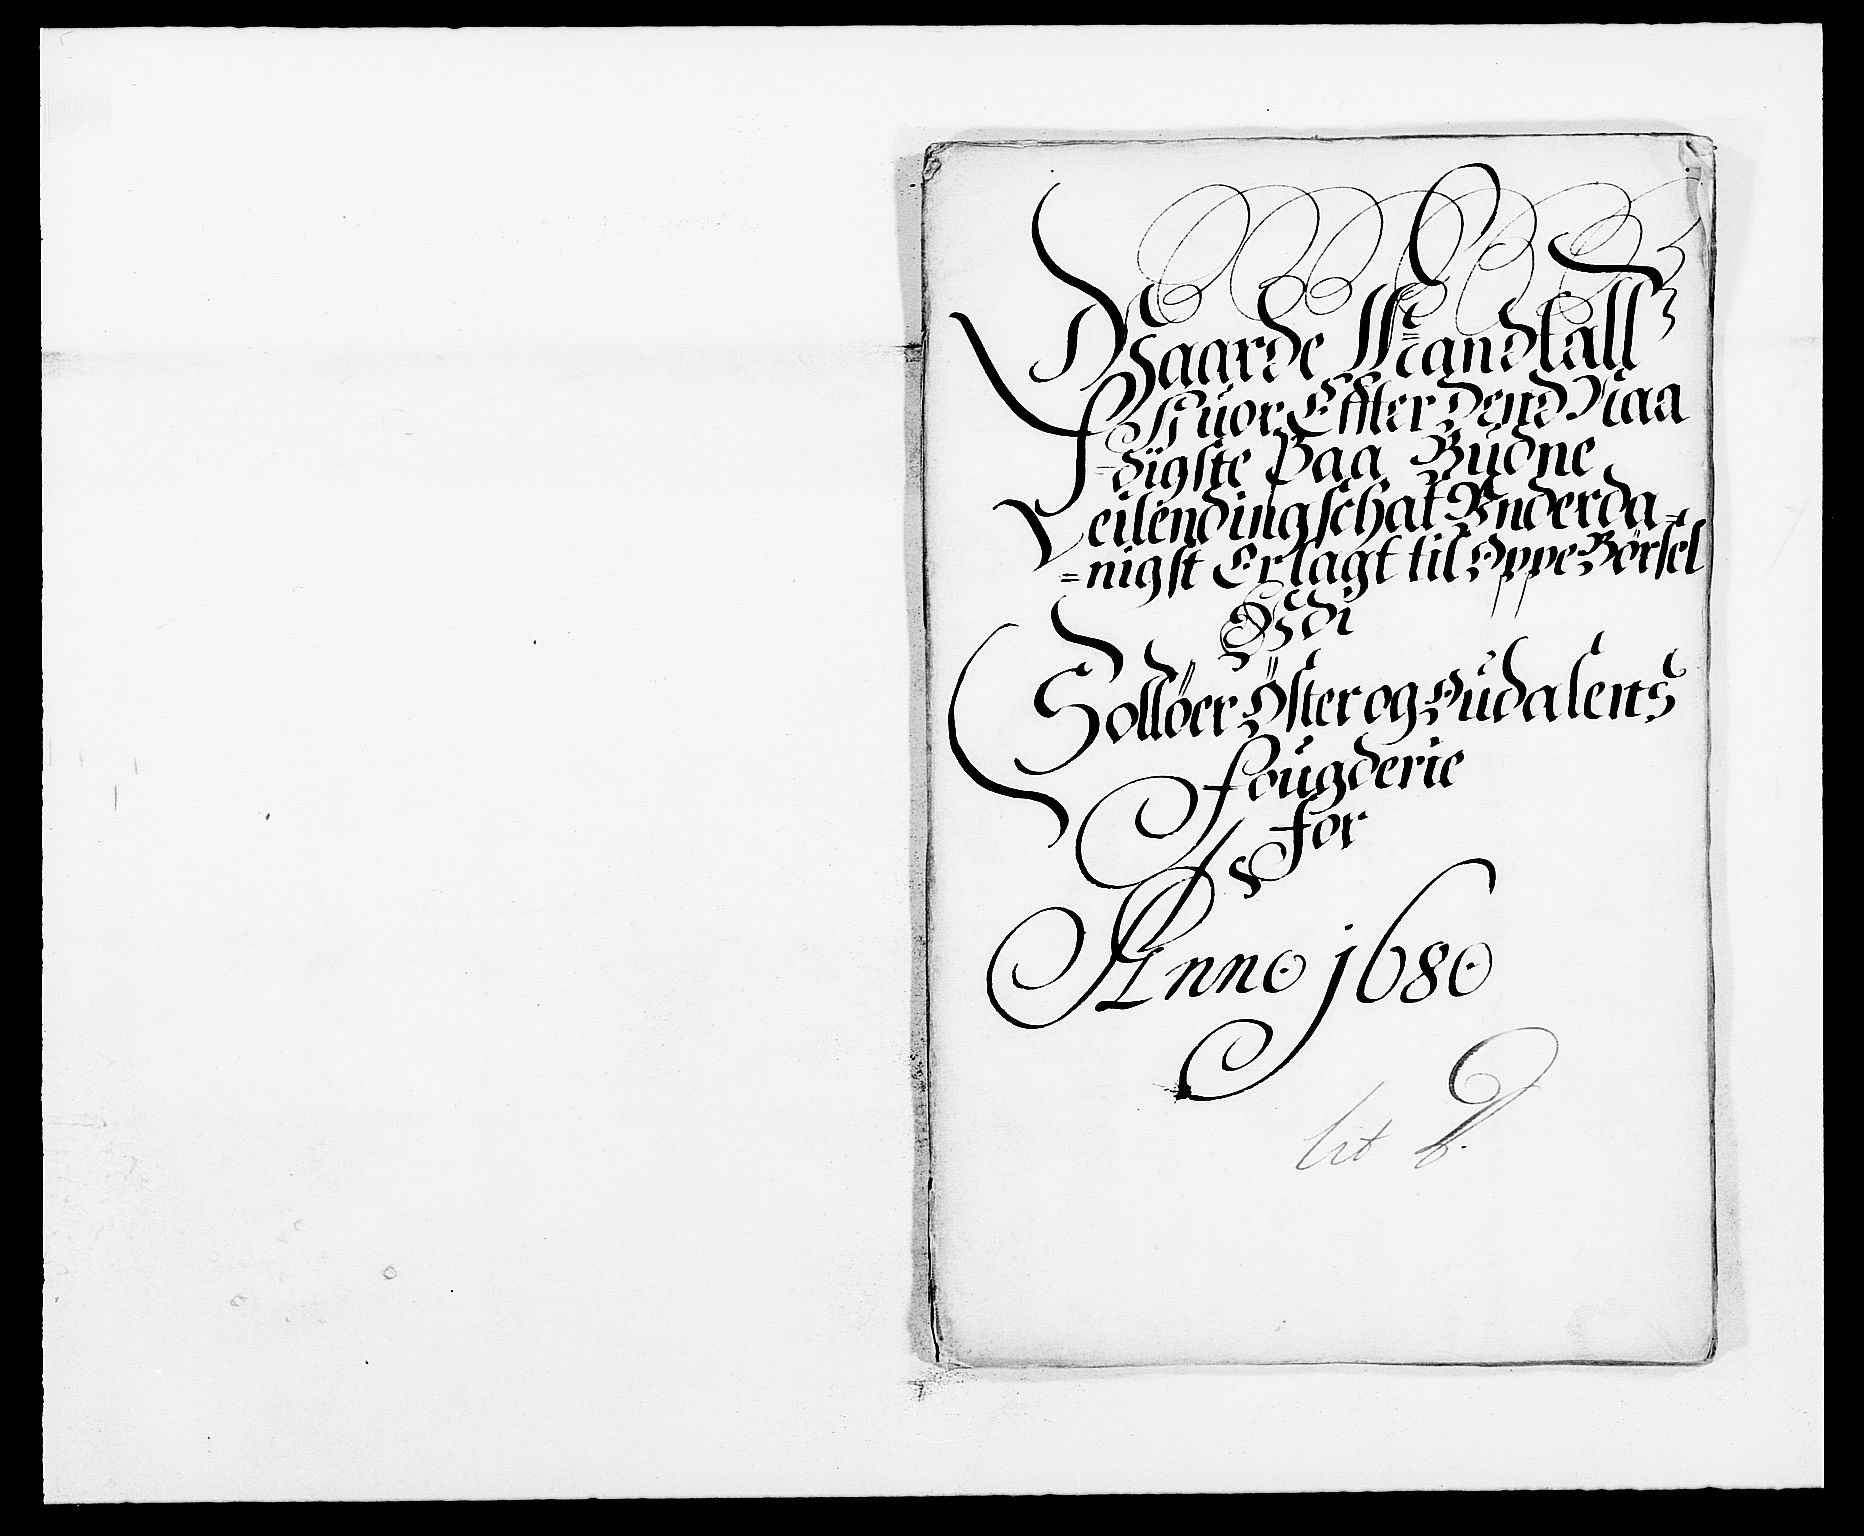 Gaarde Mandtall
Huor Effter dend Naa
=digste Paa Budne
Leilendingschat Underda=
=nigst Erlagt til Oppe Börsel
Udi
Sollöer Öster og Oudalens
fougderie
for
Anno 1680
lit B.